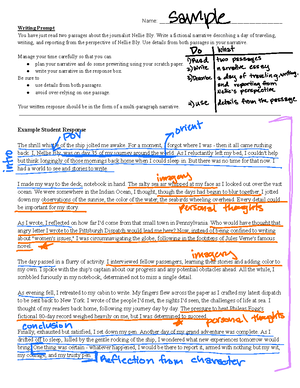 Name: Sample
Writing Prompt
You have just read two passages about the journalist Nellie Bly. Write a fictional narrative describing a day of traveling,
writing, and reporting from the perspective of Nellie Bly. Use details from both passages in your narrative.
Do What
1) Read two passages
2) Write a narrative essay
3) Describe a day of traveling, writing, and reporting from Nelly's perspective
4) use details from the passages
Manage your time carefully so that you can
• plan your narrative and do some prewriting using your scratch paper
• write your narrative in the response box
Be sure to
• use details from both passages.
• avoid over relying on one passage.
Your written response should be in the form of a multi-paragraph narrative
Example Student Response
POV
orient
intro
The shrill whistle of the ship jolted me awake. For a moment, I forgot where I was - then it all came rushing
back. I, Nellie Bly, was on day 35 of my journey around the world. As I reluctantly left my bed, I couldn't help
but think longingly of those mornings back home when I could sleep in. But there was no time for that now. I
had a world to see and stories to write.
imagery
I made my way to the deck, notebook in hand. The salty sea air whipped at my face as I looked out over the vast
ocean. We were somewhere in the Indian Ocean, I thought, though the days had begun to blur together. I jotted
down my observations of the sunrise, the color of the water, the seabirds wheeling overhead. Every detail could
be important for my story.
personal thoughts
As I wrote, I reflected on how far I'd come from that small town in Pennsylvania. Who would have thought that
angry letter I wrote to the Pittsburgh Dispatch would lead me here? Now, instead of being confined to writing
about "women's issues," I was circumnavigating the globe, following in the footsteps of Jules Verne's famous
novel.
imagery
The day passed in a flurry of activity. I interviewed fellow passengers, learning their stories and adding color to
my own. I spoke with the ship's captain about our progress and any potential obstacles ahead. All the while, I
scribbled furiously in my notebook, determined not to miss a single detail.
As evening fell, I retreated to my cabin to write. My fingers flew across the paper as I crafted my latest dispatch
to be sent back to New York. I wrote of the people I'd met, the sights I'd seen, the challenges of life at sea. I
thought of my readers back home, following my journey day by day. The pressure to beat Phileas Fogg's
fictional 80-day record weighed heavily on me, but I was determined to succeed.
personal thoughts
conclusion
Finally, exhausted but satisfied, I set down my pen. Another day of my grand adventure was complete. As I
drifted off to sleep, lulled by the gentle rocking of the ship, I wondered what new experiences tomorrow would
bring. One thing was certain - whatever happened, I would be there to report it, armed with nothing but my wit,
my courage, and my trusty pen.
Reflection from character